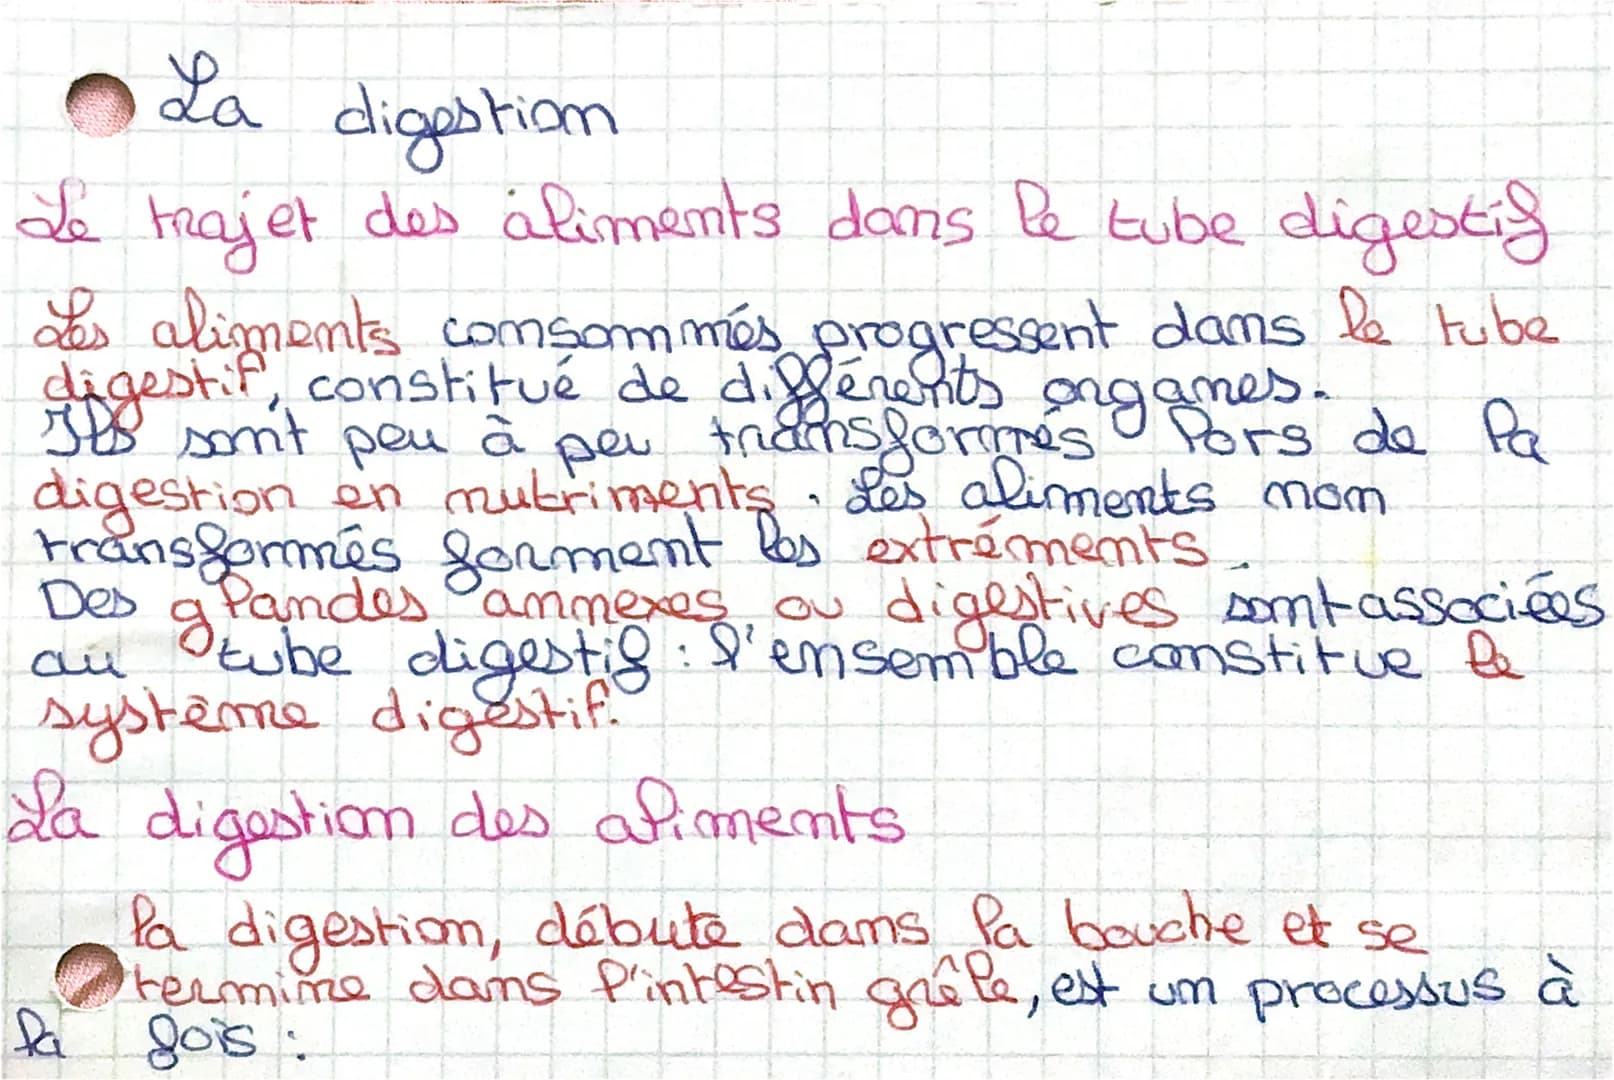 La digestion
Le trajet des aliments dans le tube digestif
Les aliments consommés progressent dans le tube
digestif, constitué de différents organes.
Ils sont peu à peu transformés lors de la
digestion en nutriments. Les aliments non
transformés forment les extréments.
Des glandes annexes ou digestives sont associées
au tube digestif : l'ensemble constitue le
système digestif.
La digestion des aliments
la digestion, débute dans la bouche et se
termine dans l'intestin grêle, est un processus à
la fois :